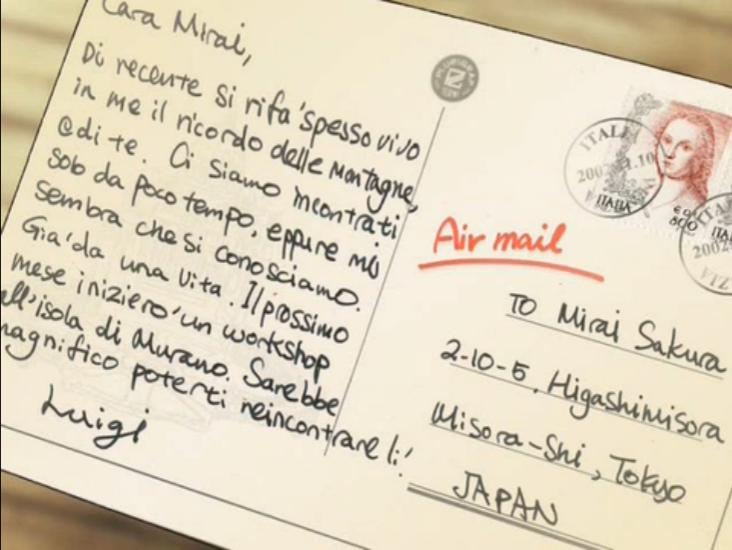 Cara Mirai,
Di recente si rifa' spesso vivo
in me il ricordo delle montagne,
e di te. Ci siamo incontrati
solo da poco tempo, eppure mi
sembra che si conosciamo.
Gia' da una vita. Il prossimo
mese iniziero' un workshop
all'isola di Murano. Sarebbe
magnifico poterti reincontrare li!
Luigi
ITALIA
ITALIA
800
ITA
2002
Air mail
TO Mirai Sakura
2-10-5, Higashimisora
Misora-Shi, Tokyo
JAPAN